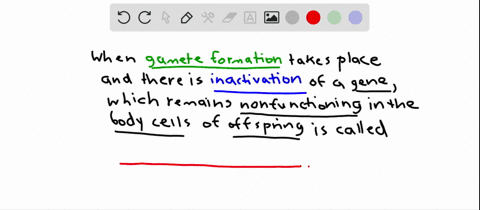 When gamete formation takes place
and there is inactivation of a gene,
which remains nonfunctioning in the
body cells of offspring is called